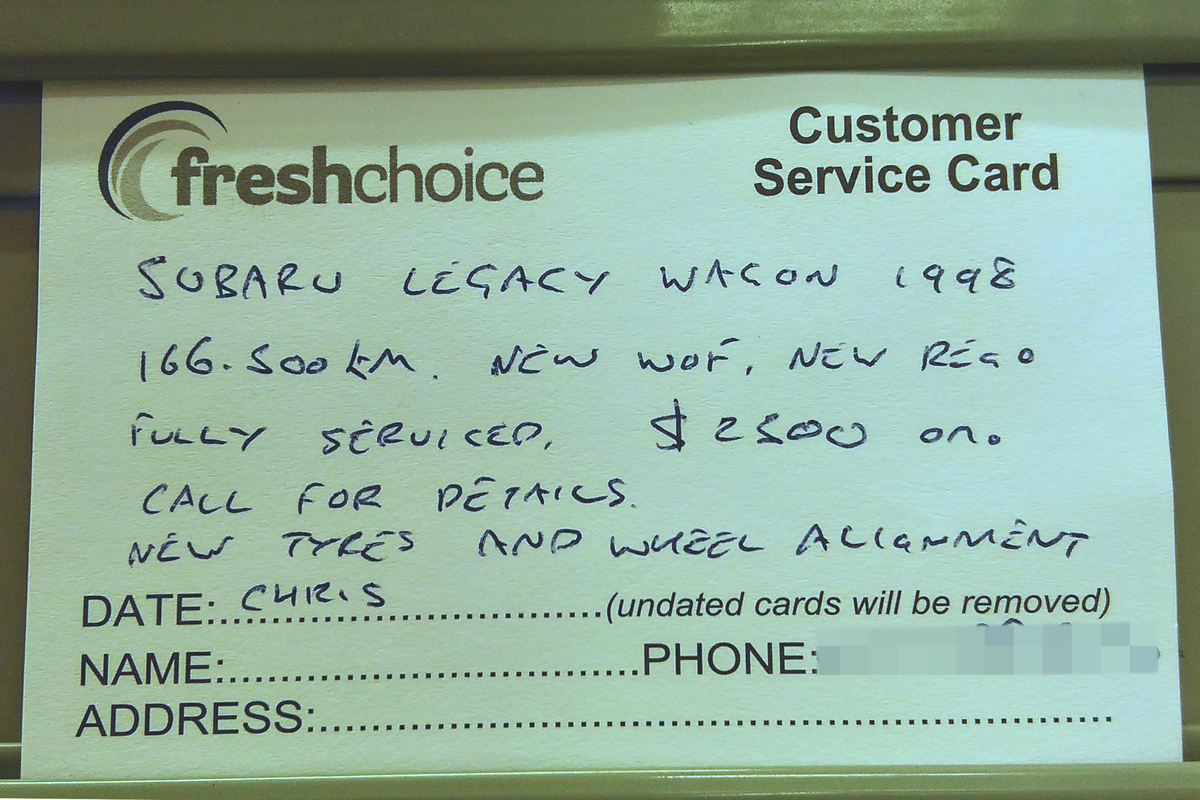 freshchoice
Customer
Service Card
SUBARU LEGACY WAGON 1998
166.500 KM. NEW WOF, NEW REGO
FULLY SERVICED, $2500 ono
CALL FOR DETAILS.
NEW TYRES AND WHEEL ALIGNMENT
DATE: CHRIS (undated cards will be removed)
NAME: PHONE:
ADDRESS: